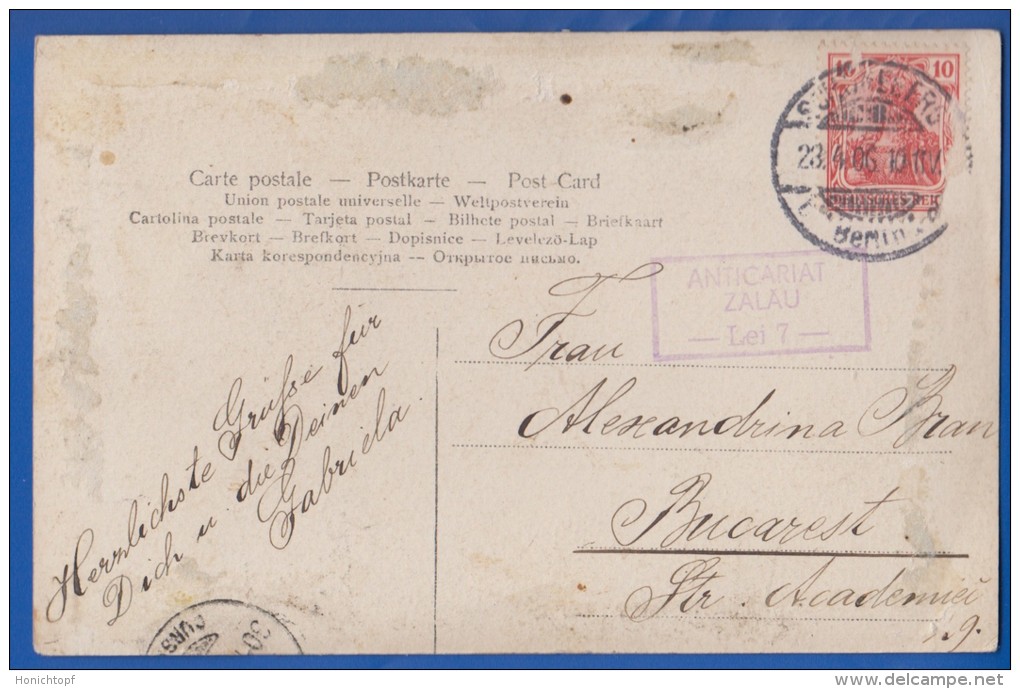 Carte postale — Postkarte — Post-Card
Union postale universelle — Weltpostverein
Cartolina postale — Tarjeta postal — Bilhete postal — Briefkaart
Brevkort — Brefkort — Dopisnice — Levelező-Lap
Karta korespondencyjna — Открытое письмо.
10
DEUTSCHES REICH
23.4.06. 10
Berlin
ANTICARIAT
ZALĂU
— Lei 7 —
Herrlichste Grüsse für
Dich u. die Deinen
Gabriela.
Frau
Alexandrina Bran
Bucarest
Str. Academiei
9.
30
CURS
Honichtopf
delcampe.net